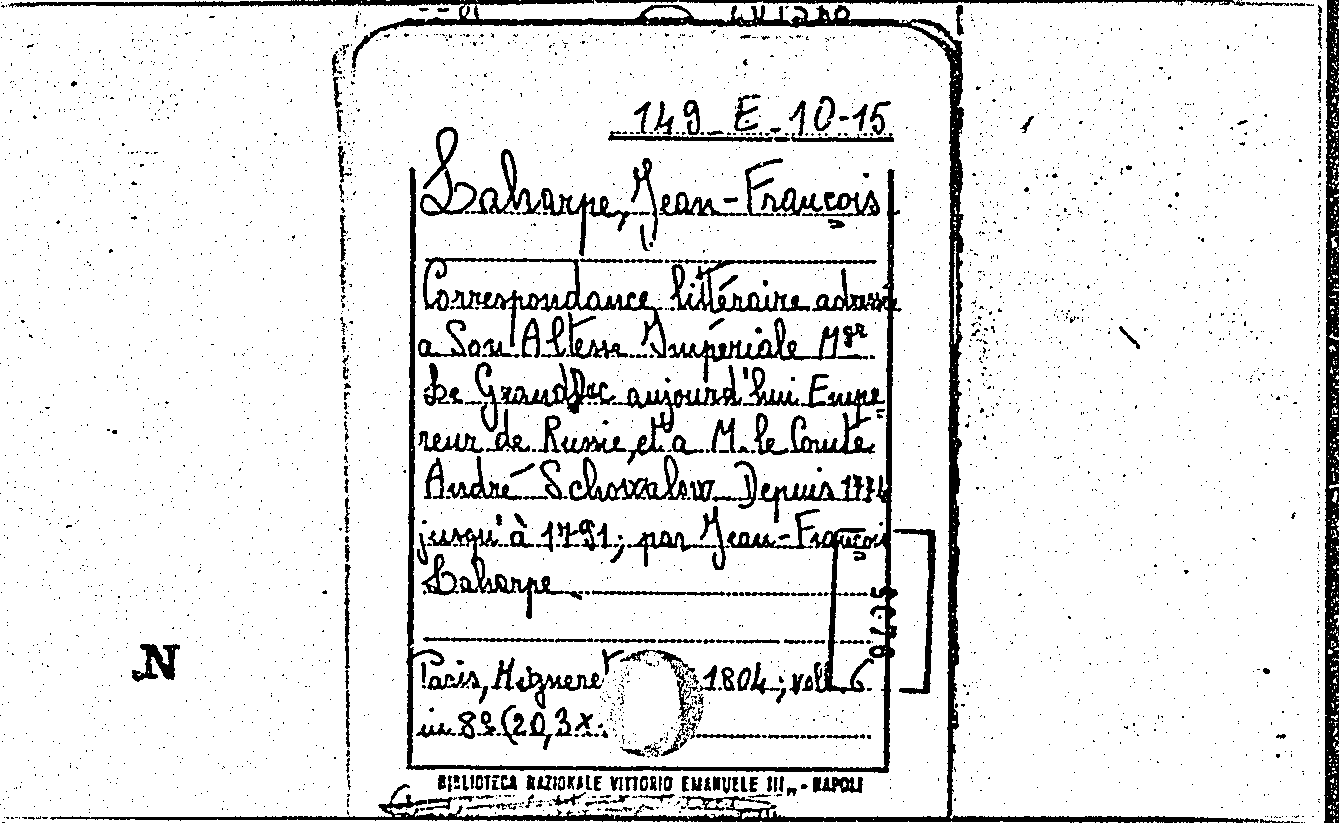 149 E 10-15
Laharpe, Jean-François
Correspondance littéraire adressée
a Son Altesse Impériale Mgr
Le Grand Duc aujourd'hui Empe
reur de Russie, et a M. le Comte
André Schowalow Depuis 1774
jusqu'à 1791; par Jean-François
Laharpe
Paris, Migneret 1804; voll. 6
in 8º (20,3x
BIBLIOTECA NAZIONALE VITTORIO EMANUELE III„ - NAPOLI
N